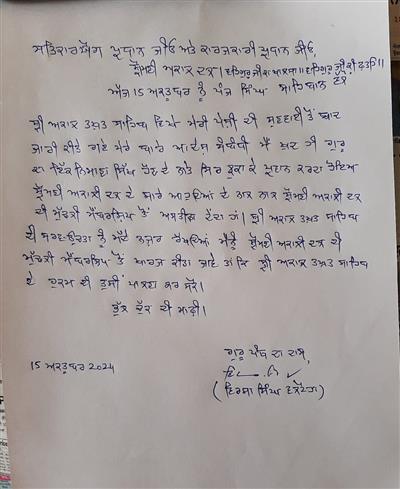 ਸਤਿਕਾਰਯੋਗ ਪ੍ਰਧਾਨ ਜੀਓ ਅਤੇ ਕਾਰਜਕਾਰੀ ਪ੍ਰਧਾਨ ਜੀਓ,
ਸ਼੍ਰੋਮਣੀ ਅਕਾਲੀ ਦਲ। ਵਾਹਿਗੁਰੂ ਜੀ ਕਾ ਖਾਲਸਾ॥ ਵਾਹਿਗੁਰੂ ਜੀ ਕੀ ਫਤਹਿ॥
ਅੱਜ 15 ਅਕਤੂਬਰ ਨੂੰ ਪੰਜ ਸਿੰਘ ਸਾਹਿਬਾਨ ਵਲੋਂ
ਸ੍ਰੀ ਅਕਾਲ ਤਖ਼ਤ ਸਾਹਿਬ ਵਿਖੇ ਮੇਰੀ ਪੇਸ਼ੀ ਦੀ ਸੁਣਵਾਈ ਤੋਂ ਬਾਅਦ
ਜਾਰੀ ਕੀਤੇ ਗਏ ਮੇਰੇ ਬਾਰੇ ਆਦੇਸ਼ ਸੰਬੰਧੀ ਮੈਂ ਘਰ ਦੀ ਗੁਰੂ
ਦਾ ਇੱਕ ਨਿਮਾਣਾ ਸਿੱਖ ਹੋਣ ਦੇ ਨਾਤੇ ਸਿਰ ਝੁਕਾ ਕੇ ਪ੍ਰਵਾਨ ਕਰਦਾ ਹੋਇਆ
ਸ਼੍ਰੋਮਣੀ ਅਕਾਲੀ ਦਲ ਦੇ ਸਾਰੇ ਅਹੁਦਿਆਂ ਦੇ ਨਾਲ ਨਾਲ ਸ਼੍ਰੋਮਣੀ ਅਕਾਲੀ ਦਲ
ਦੀ ਮੁੱਢਲੀ ਮੈਂਬਰਸ਼ਿਪ ਤੋਂ ਅਸਤੀਫ਼ਾ ਦੇਂਦਾ ਹਾਂ। ਸ੍ਰੀ ਅਕਾਲ ਤਖ਼ਤ ਸਾਹਿਬ
ਦੀ ਸਰਵਉੱਚਤਾ ਨੂੰ ਮੱਦੇ ਨਜ਼ਰ ਰੱਖਦਿਆਂ ਮੈਨੂੰ ਸ਼੍ਰੋਮਣੀ ਅਕਾਲੀ ਦਲ ਦੀ
ਮੁੱਢਲੀ ਮੈਂਬਰਸ਼ਿਪ ਤੋਂ ਖਾਰਜ ਕੀਤਾ ਜਾਵੇ ਤਾਂ ਕਿ ਸ੍ਰੀ ਅਕਾਲ ਤਖ਼ਤ ਸਾਹਿਬ
ਦੇ ਹੁਕਮ ਦੀ ਤੁਸੀਂ ਪਾਲਣਾ ਕਰ ਸਕੋ।
ਭੁੱਲ ਚੁੱਕ ਦੀ ਮਾਫ਼ੀ।
15 ਅਕਤੂਬਰ 2024
ਗੁਰੂ ਪੰਥ ਦਾ ਦਾਸ,
(ਵਿਰਸਾ ਸਿੰਘ ਵਲਟੋਹਾ)